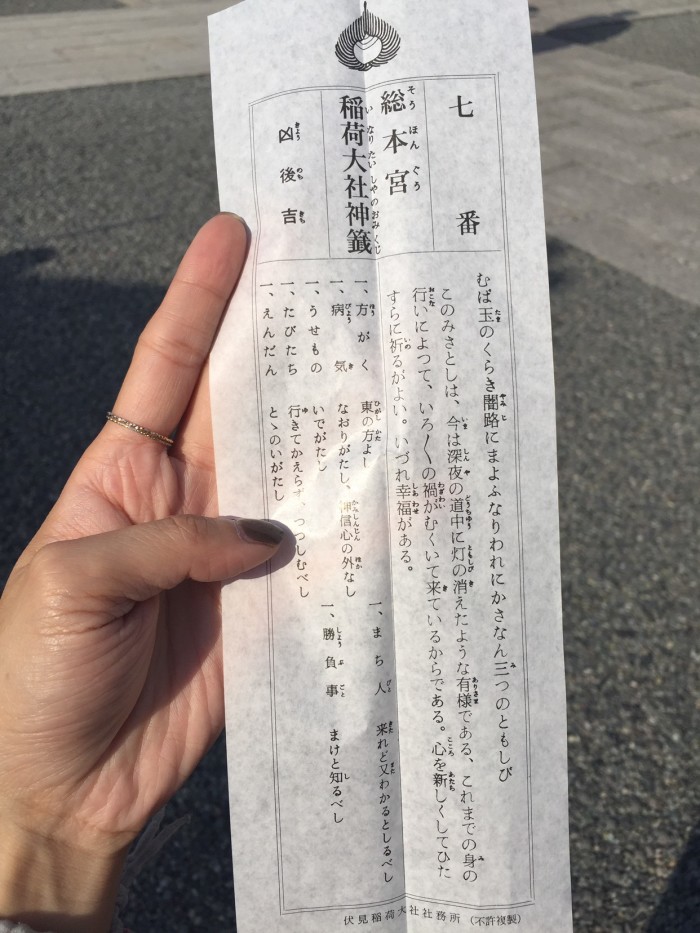 七番
総本宮
稲荷大社神籤
凶後吉
むば玉のくらき闇路にまよふなりわれにかさなん三つのともしび
このみさとしは、今は深夜の道中に灯の消えたような有様である、これまでの身の
行いによって、いろ〳〵の禍がむくいて来ているからである。心を新しくしてひた
すらに祈るがよい。いづれ幸福がある。
一、方がく 東の方よし
一、病気 なおりがたし、神信心の外なし
一、うせもの いでがたし
一、たびたち 行きてかえらず、つつしむべし
一、えんだん とゝのいがたし
一、まち人 来れど又わかるとしるべし
一、勝負事 まけと知るべし
伏見稲荷大社社務所 (不許複製)